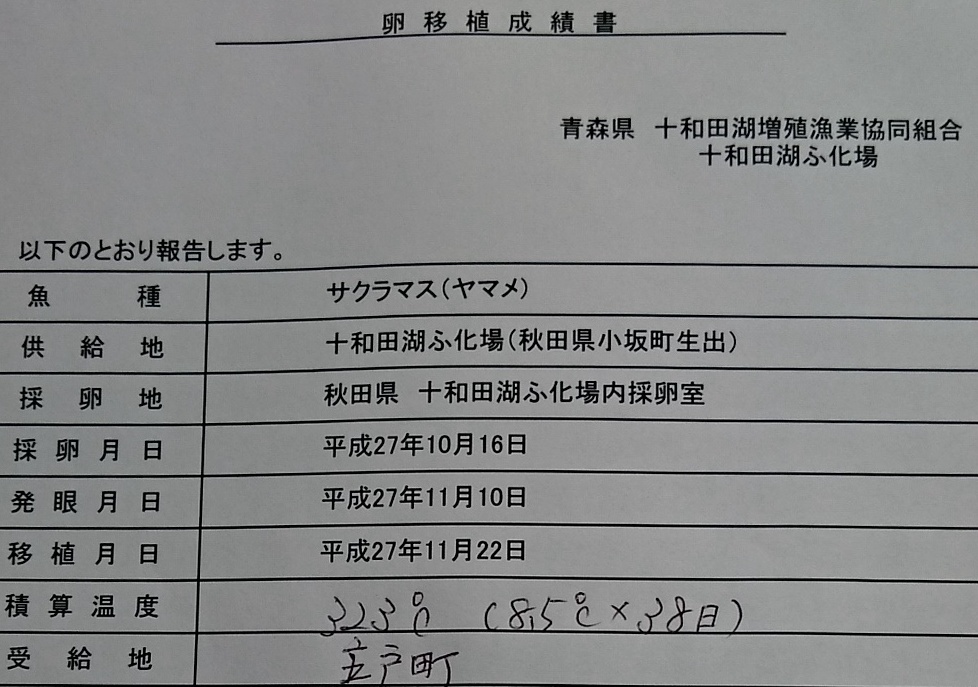 卵移植成績書
青森県 十和田湖増殖漁業協同組合
十和田湖ふ化場
以下のとおり報告します。
魚種 サクラマス(ヤマメ)
供給地 十和田湖ふ化場(秋田県小坂町生出)
採卵地 秋田県 十和田湖ふ化場内採卵室
採卵月日 平成27年10月16日
発眼月日 平成27年11月10日
移植月日 平成27年11月22日
積算温度 323℃ (8.5℃×38日)
受給地 五戸町